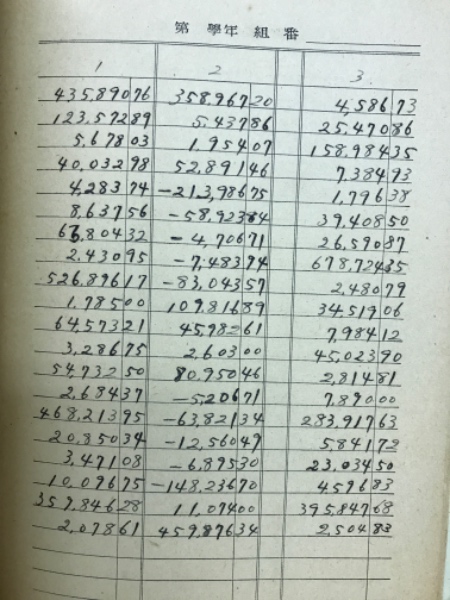 第 學年 組 番
1 2 3
435,890 76 358,967 20 4,586 73
123,572 89 5,437 86 25,470 86
5,678 03 1,954 07 158,984 35
40,032 98 52,891 46 7,384 93
4,283 74 -213,986 75 1,796 38
8,637 56 -58,923 84 39,408 50
63,804 32 -4,706 71 26,590 87
2,430 95 -7,483 94 678,724 35
526,896 17 -83,043 57 2,480 79
1,785 00 109,816 89 34,519 06
64,573 21 45,982 61 7,984 12
3,286 75 2,603 00 45,023 90
54,732 50 80,950 46 2,814 81
2,684 37 -5,206 71 7,890 00
468,213 95 -63,821 34 283,917 63
20,850 34 -12,560 49 5,841 72
3,471 08 -6,895 30 23,034 50
10,096 75 -148,236 70 4,596 83
359,846 28 11,074 00 395,847 68
2,078 61 459,876 34 2,504 83